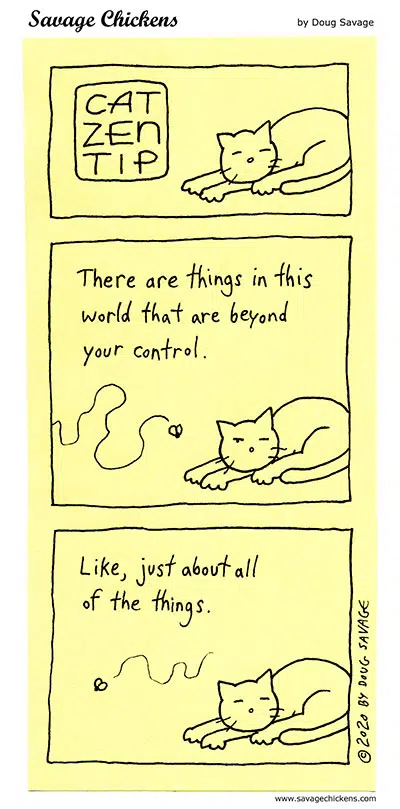 Savage Chickens
by Doug Savage
CAT
ZEN
TIP
There are things in this
world that are beyond
your control.
Like, just about all
of the things.
© 2020 BY DOUG SAVAGE
www.savagechickens.com